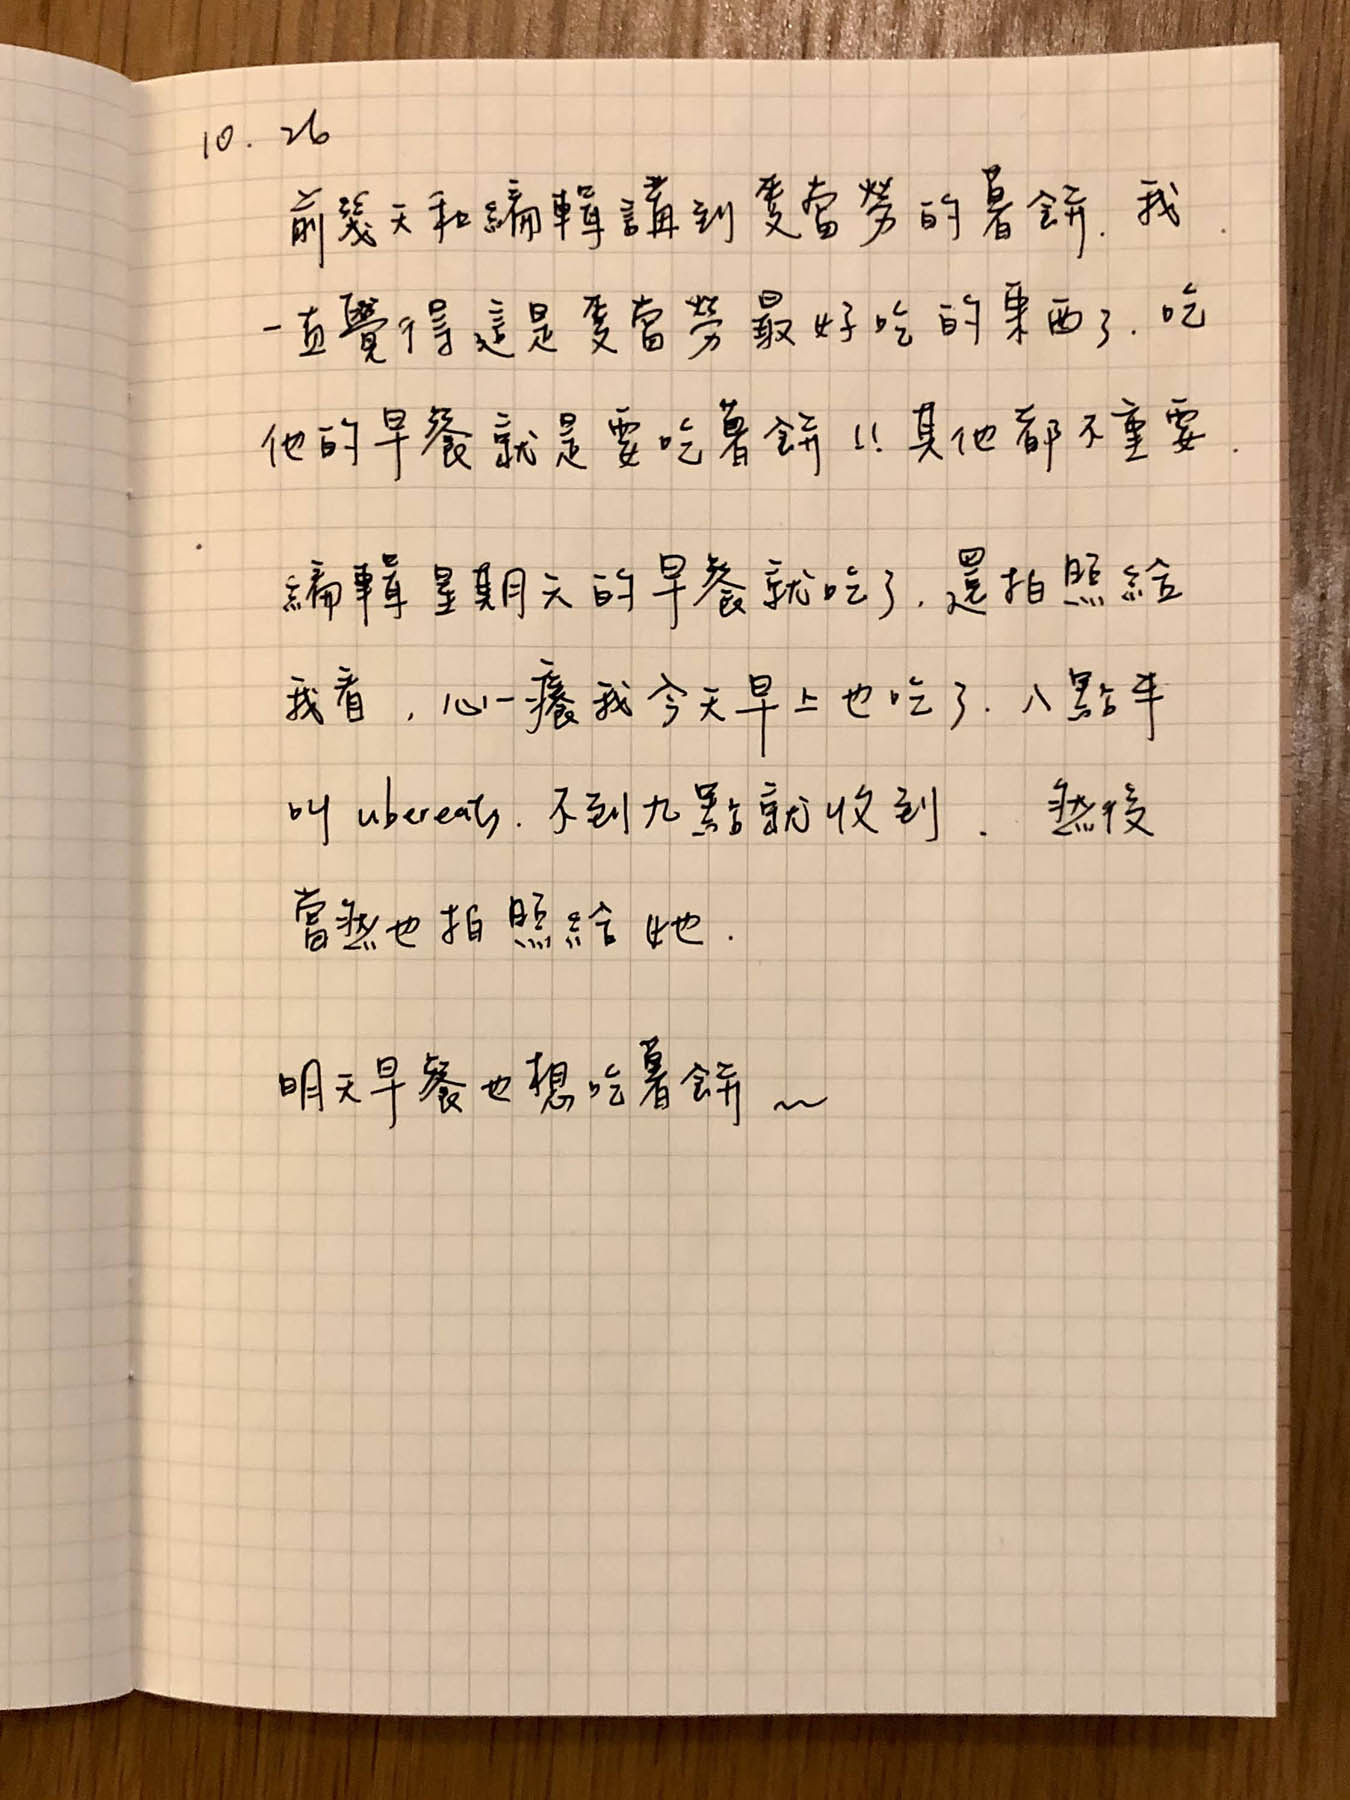 10.26
前幾天和編輯講到麥當勞的薯餅.我
一直覺得這是麥當勞最好吃的東西了.吃
他的早餐就是要吃薯餅!!其他都不重要.
編輯星期天的早餐就吃了.還拍照給
我看,心一癢我今天早上也吃了.八點半
叫ubereats.不到九點就收到. 然後
當然也拍照給她.
明天早餐也想吃薯餅~